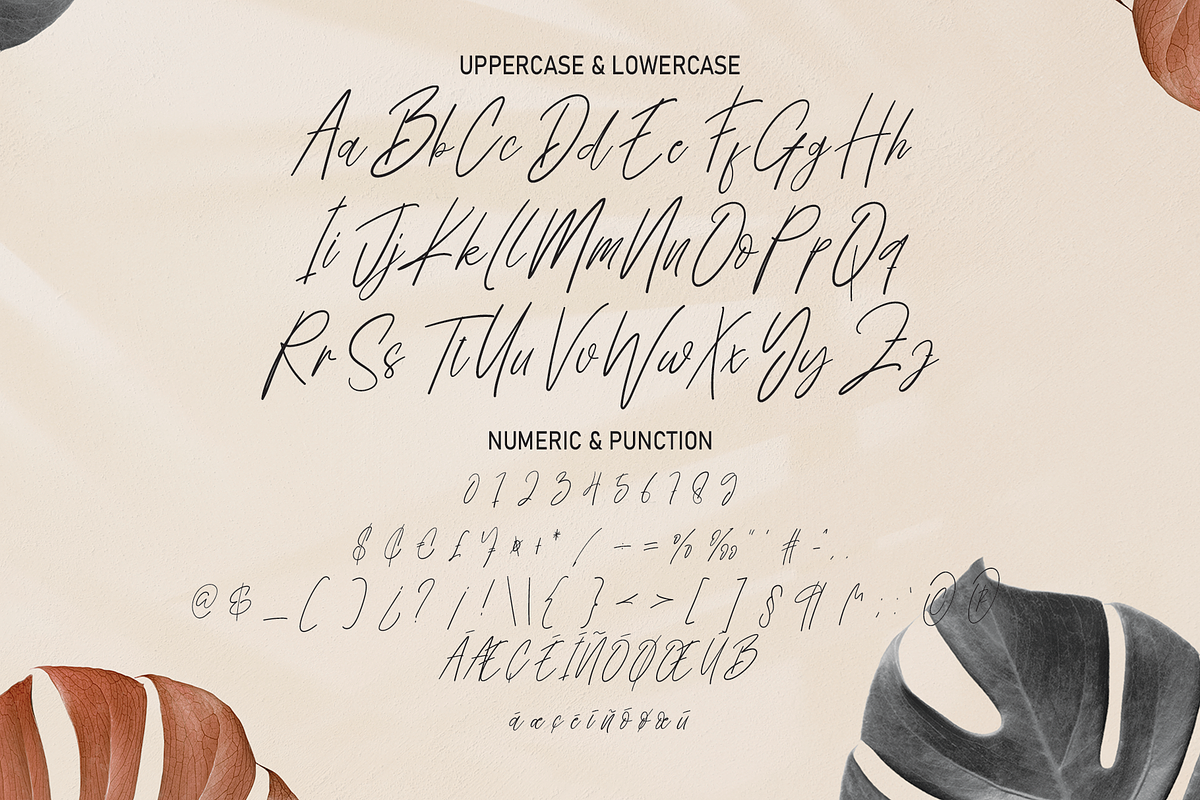 UPPERCASE & LOWERCASE
Aa Bb Cc Dd Ee Ff Gg Hh
Ii Jj Kk Ll Mm Nn Oo Pp Qq
Rr Ss Tt Uu Vv Ww Xx Yy Zz
NUMERIC & PUNCTION
0 1 2 3 4 5 6 7 8 9
$ ¢ € £ ¥ ¤ + * / ÷ = % ‰ " ' # - ^ . ,
@ & _ ( ) ¿ ? ¡ ! \ | { } < > [ ] § ¶ : ; © ®
Á Æ Ç É Í Ñ Ó Ø Œ Ú ß
á æ ç é í ñ ó ø œ ú